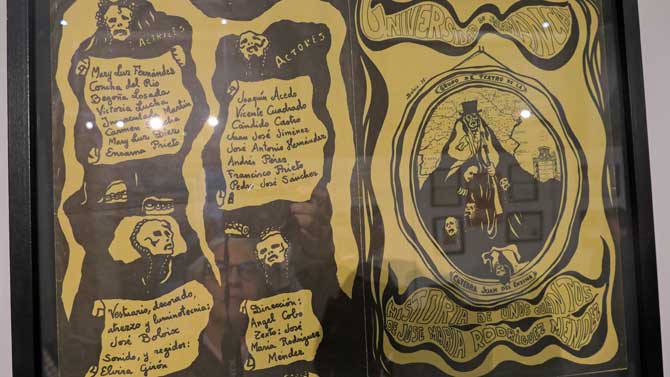 ACTRICES
Mary Luz Fernández
Concha del Río
Begoña Losada
Victoria Lucha
Inmaculada Martín
Carmen
Mary Luz
Encarna Prieto
Vestuario, decorado,
atrezzo y luminotecnia:
José Boloix
Sonido, y regidor:
Elvira Girón
ACTORES
Joaquín Acedo
Vicente Cuadrado
Cándido Castro
Juan José Jiménez
José Antonio Hernández
Andrés Pérez
Francisco Prieto
Pedro José Sánchez
Dirección:
Angel Cobo
Texto: José
María Rodríguez
Méndez
UNIVERSIDAD DE SALAMANCA
GRUPO DE TEATRO DE LA
CATEDRA JUAN DEL ENZINA
HISTORIA DE UNOS CUANTOS
DE JOSE MARIA RODRIGUEZ MENDEZ